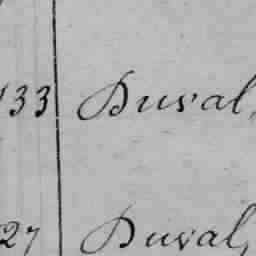 133 Duval,
27 Duval,